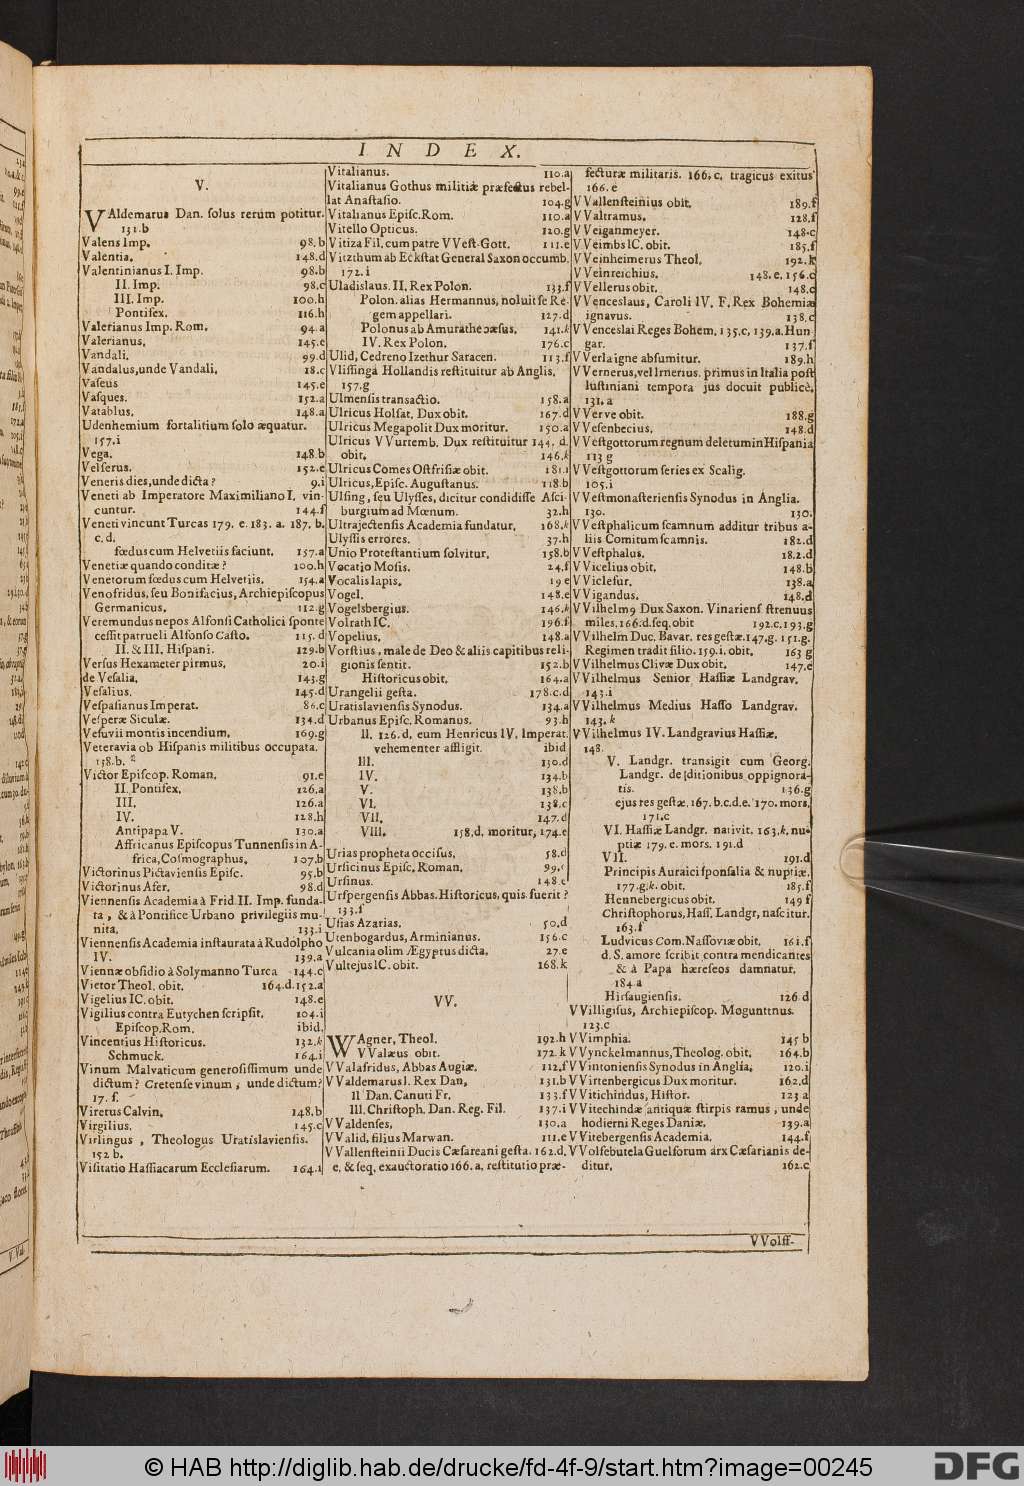 I N D E X.
V.
VAldemarus Dan. solus rerum potitur.
131.b
Valens Imp. 98.b
Valentia. 148.d
Valentinianus I. Imp. 98.b
II. Imp. 98.c
III. Imp. 100.h
Pontifex. 116.h
Valerianus Imp. Rom. 94.a
Valerianus. 145.e
Vandali. 99.d
Vandalus, unde Vandali. 18.c
Vaſeus 145.e
Vaſques. 152.a
Vatablus. 148.a
Udenhemium fortalitium ſolo æquatur.
157.i
Vega. 148.b
Velſerus. 152.e
Veneris dies, unde dicta? 9.i
Veneti ab Imperatore Maximiliano I. vin-
cuntur. 144.f
Veneti vincunt Turcas 179. e. 183. a. 187. b.
c. d.
fœdus cum Helvetiis faciunt. 157.a
Venetiæ quando conditæ? 100.h
Venetorum fœdus cum Helvetiis. 154.a
Venofridus, ſeu Bonifacius, Archiepiſcopus
Germanicus. 112.g
Veremundus nepos Alfonſi Catholici ſponte
ceſſit patrueli Alfonſo Caſto. 115.d
II. & III. Hiſpani. 129.b
Verſus Hexameter pirmus. 20.i
de Veſalia. 143.g
Veſalius. 145.d
Veſpaſianus Imperat. 86.c
Veſperæ Siculæ. 134.d
Veſuvii montis incendium. 169.g
Veteravia ob Hiſpanis militibus occupata.
158.b.
Victor Epiſcop. Roman. 91.e
II. Pontifex. 126.a
III. 126.a
IV. 128.h
Antipapa V. 130.a
Affricanus Epiſcopus Tunnenſis in A-
frica, Coſmographus. 107.b
Victorinus Pictavienſis Epiſc. 95.b
Victorinus Afer. 98.d
Viennenſis Academia à Frid. II. Imp. funda-
ta, & à Pontifice Urbano privilegiis mu-
nita. 133.i
Viennenſis Academia inſtaurata à Rudolpho
IV. 139.a
Viennæ obſidio à Solymanno Turca 144.c
Vietor Theol. obit. 164.d. 152.a
Vigelius IC. obit. 148.e
Vigilius contra Eutychen ſcripſit. 104.i
Epiſcop. Rom. ibid.
Vincentius Hiſtoricus. 132.k
Schmuck. 164.i
Vinum Malvaticum generoſiſſimum unde
dictum? Cretenſe vinum, unde dictum?
17. f.
Viretus Calvin. 148.b
Virgilius. 145.c
Virlingus, Theologus Uratiſlavienſis.
152 b.
Viſitatio Haſſiacarum Eccleſiarum. 164.i
Vitalianus. 110.a
Vitalianus Gothus militiæ præfectus rebel-
lat Anaſtaſio. 104.g
Vitalianus Epiſc. Rom. 110.a
Vitello Opticus. 120.g
Vitiza Fil. cum patre VVeſt-Gott. 111.e
Vitzthum ab Eckſtat General Saxon occumb.
172.i
Uladislaus. II. Rex Polon. 133.f
Polon. alias Hermannus, noluit ſe Re-
gem appellari. 127.d
Polonus ab Amurathe cæſus. 141.k
IV. Rex Polon. 176.c
Ulid, Cedreno Izethur Saracen. 113.f
Vliſſinga Hollandis reſtituitur ab Anglis.
157.g
Ulmenſis transactio. 158.a
Ulricus Holſat. Dux obit. 167.d
Ulricus Megapolit Dux moritur. 150.a
Ulricus VVurtemb. Dux reſtituitur 144. d.
obit. 146.k
Ulricus Comes Oſtfriſiæ obit. 181.i
Ulricus, Epiſc. Auguſtanus. 118.b
Ulſing, ſeu Ulyſſes, dicitur condidiſſe Aſci-
burgium ad Mœnum. 32.h
Ultrajectenſis Academia fundatur. 168.k
Ulyſſis errores. 37.h
Unio Proteſtantium ſolvitur. 158.b
Vocatio Moſis. 24.f
Vocalis lapis. 19 e
Vogel. 148.e
Vogelsbergius. 146.k
Volrath IC. 196.f
Vopelius. 148.a
Vorſtius, male de Deo & aliis capitibus reli-
gionis ſentit. 152.b
Hiſtoricus obit. 164.a
Urangelii geſta. 178.c.d
Uratiſlavienſis Synodus. 134.a
Urbanus Epiſc. Romanus. 93.h
II. 126.d. eum Henricus IV. Imperat.
vehementer affligit. ibid
III. 130.d
IV. 134.b
V. 138.b
VI. 138.c
VII. 147.d
VIII. 158.d. moritur, 174.e
Urias propheta occiſus. 58.d
Urſicinus Epiſc. Roman. 99.c
Urſinus. 148 c
Urſpergenſis Abbas. Hiſtoricus, quis fuerit?
133.f
Uſias Azarias. 50.d
Utenbogardus, Arminianus. 156.c
Vulcania olim Ægyptus dicta. 27.e
Vultejus IC. obit. 168.k
VV.
WAgner, Theol. 192.h
VValæus obit. 172.k
VValafridus, Abbas Augiæ. 112.f
VValdemarus I. Rex Dan. 131.b
II Dan. Canuti Fr. 133.f
III. Chriſtoph. Dan. Reg. Fil. 137.i
VValdenſes. 130.a
VValid, filius Marwan. 111.e
VVallenſteinii Ducis Cæſareani geſta. 162.d.
e. & ſeq. exauctoratio 166.a. reſtitutio præ-
fecturæ militaris. 166. c. tragicus exitus
166.e
VVallenſteinius obit. 189.f
VValtramus. 128.f
VVeiganmeyer. 148.c
VVeimbs IC. obit. 185.f
VVeinheimerus Theol. 192.k
VVeinreichius. 148.e. 156.c
VVellerus obit. 148.c
VVenceslaus, Caroli IV. F. Rex Bohemiæ
ignavus. 138.c
VVenceslai Reges Bohem. 135.c. 139.a. Hun
gar. 137.f
VVerla igne abſumitur. 189.h
VVernerus, vel Irnerius. primus in Italia poſt
Iuſtiniani tempora jus docuit publicè.
131.a
VVerve obit. 188.g
VVeſenbecius. 148.d
VVeſtgottorum regnum deletum in Hiſpania
113 g
VVeſtgottorum ſeries ex Scalig.
105.i
VVeſtmonaſterienſis Synodus in Anglia.
130. 130.
VVeſtphalicum ſcamnum additur tribus a-
liis Comitum ſcamnis. 182.d
VVeſtphalus. 18.2.d
VVicelius obit. 148.b
VViclefur. 138.a
VVigandus. 148.d
VVilhelm9 Dux Saxon. Vinarienſ ſtrenuus
miles. 166.d. ſeq. obit 192.c. 193.g
VVilhelm Duc. Bavar. res geſtæ. 147.g. 151.g.
Regimen tradit filio. 159.i. obit. 163 g
VVilhelmus Clivæ Dux obit. 147.e
VVilhelmus Senior Haſſiæ Landgrav.
143.i
VVilhelmus Medius Haſſo Landgrav.
143. k
VVilhelmus IV. Landgravius Haſſiæ.
148.
V. Landgr. transigit cum Georg.
Landgr. de ditionibus oppignora-
tis. 136.g
ejus res geſtæ. 167. b.c.d.e. 170. mors.
171.c
VI. Haſſiæ Landgr. nativit. 163.k. nu-
ptiæ 179. e. mors. 191.d
VII. 191.d
Principis Auraici ſponſalia & nuptiæ.
177.g.k. obit. 185.f
Hennebergicus obit. 149 f
Chriſtophorus, Haſſ. Landgr. naſcitur.
163.f
Ludvicus Com. Naſſoviæ obit. 161.f
d. S. amore ſcribit contra mendicantes
& à Papa hæreſeos damnatur.
184 a
Hirſaugienſis. 126 d
VVilligiſus, Archiepiſcop. Moguntinus.
123.c
VVimphia. 145 b
VVynckelmannus, Theolog. obit. 164.b
VVintonienſis Synodus in Anglia. 120.i
VVirtenbergicus Dux moritur. 162.d
VVitichindus, Hiſtor. 123 a
VVitechindæ antiquæ ſtirpis ramus, unde
hodierni Reges Daniæ. 139.a
VVitebergenſis Academia. 144.f
VVolfebutela Guelforum arx Cæſarianis de-
ditur. 162.c
VVolff-
© HAB http://diglib.hab.de/drucke/fd-4f-9/start.htm?image=00245
DFG